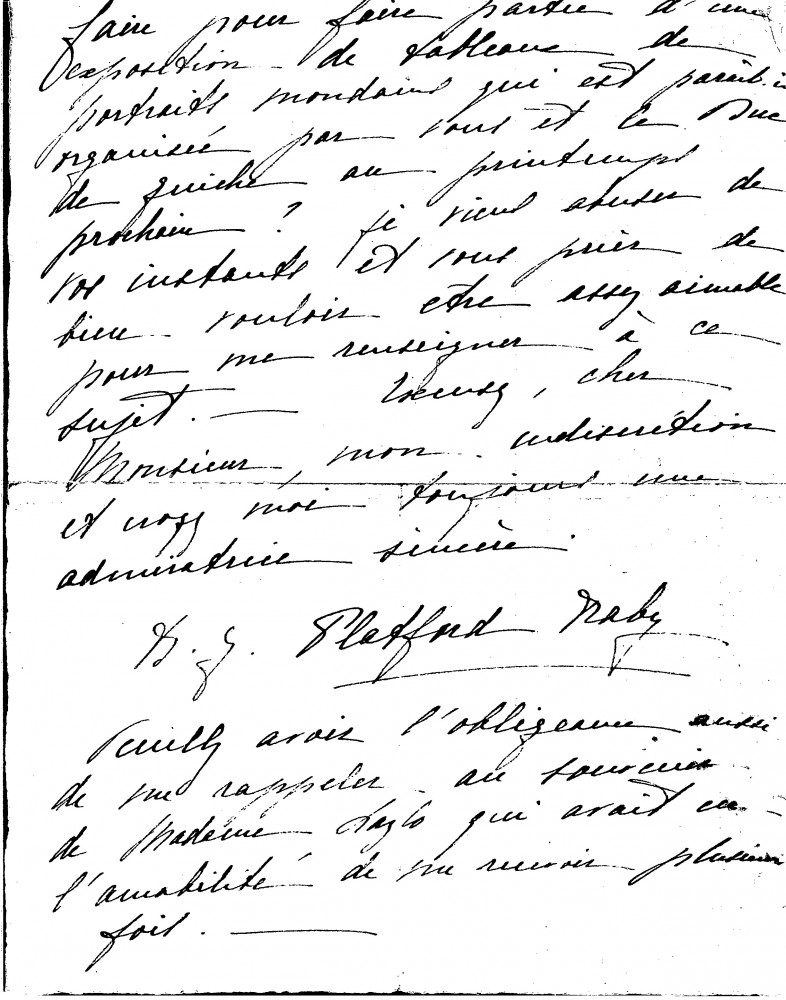 faire pour faire partie d'une
exposition de tableaux de
portraits mondains qui est parait-il
organisée par vous et le Duc
de guiche au printemps
prochain ? je viens abuser de
vos instants et vous prier de
bien vouloir être assez aimable
pour me renseigner à ce
sujet. — Excusez, cher
Monsieur, mon indiscrétion
et croyez moi toujours une
admiratrice sincère.
Platford
Veuillez avoir l'obligeance aussi
de me rappeler au souvenir
de Madame Laszlo qui avait eu
l'amabilité de me recevoir plusieurs
fois. —